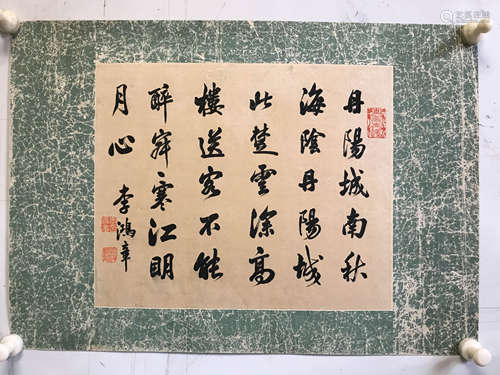 丹陽城南秋
海陰丹陽城
北楚雲深高
樓送客不能
醉寂々寒江明
月心
李鴻章